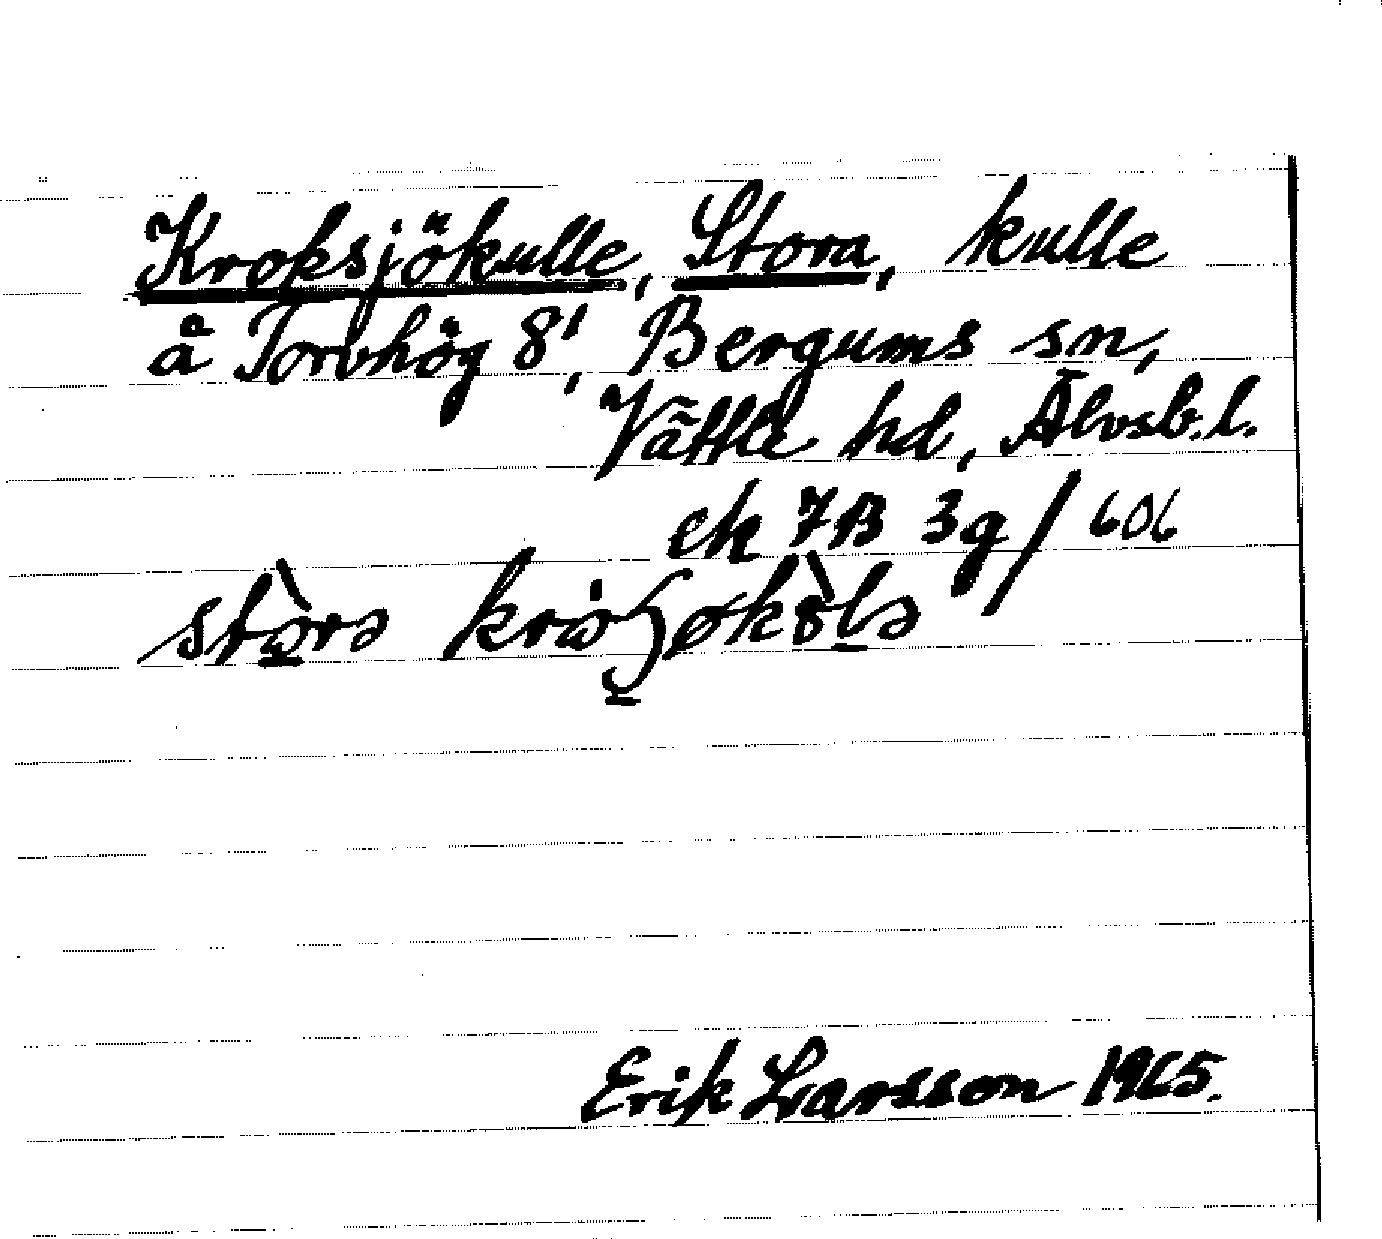 Kroksjökulle, Stora, kulle
å Torvhög 8¹, Bergums sn,
Vättle hd, Älvsb. l.
ek 7B 3g/606
Erik Larsson 1965.